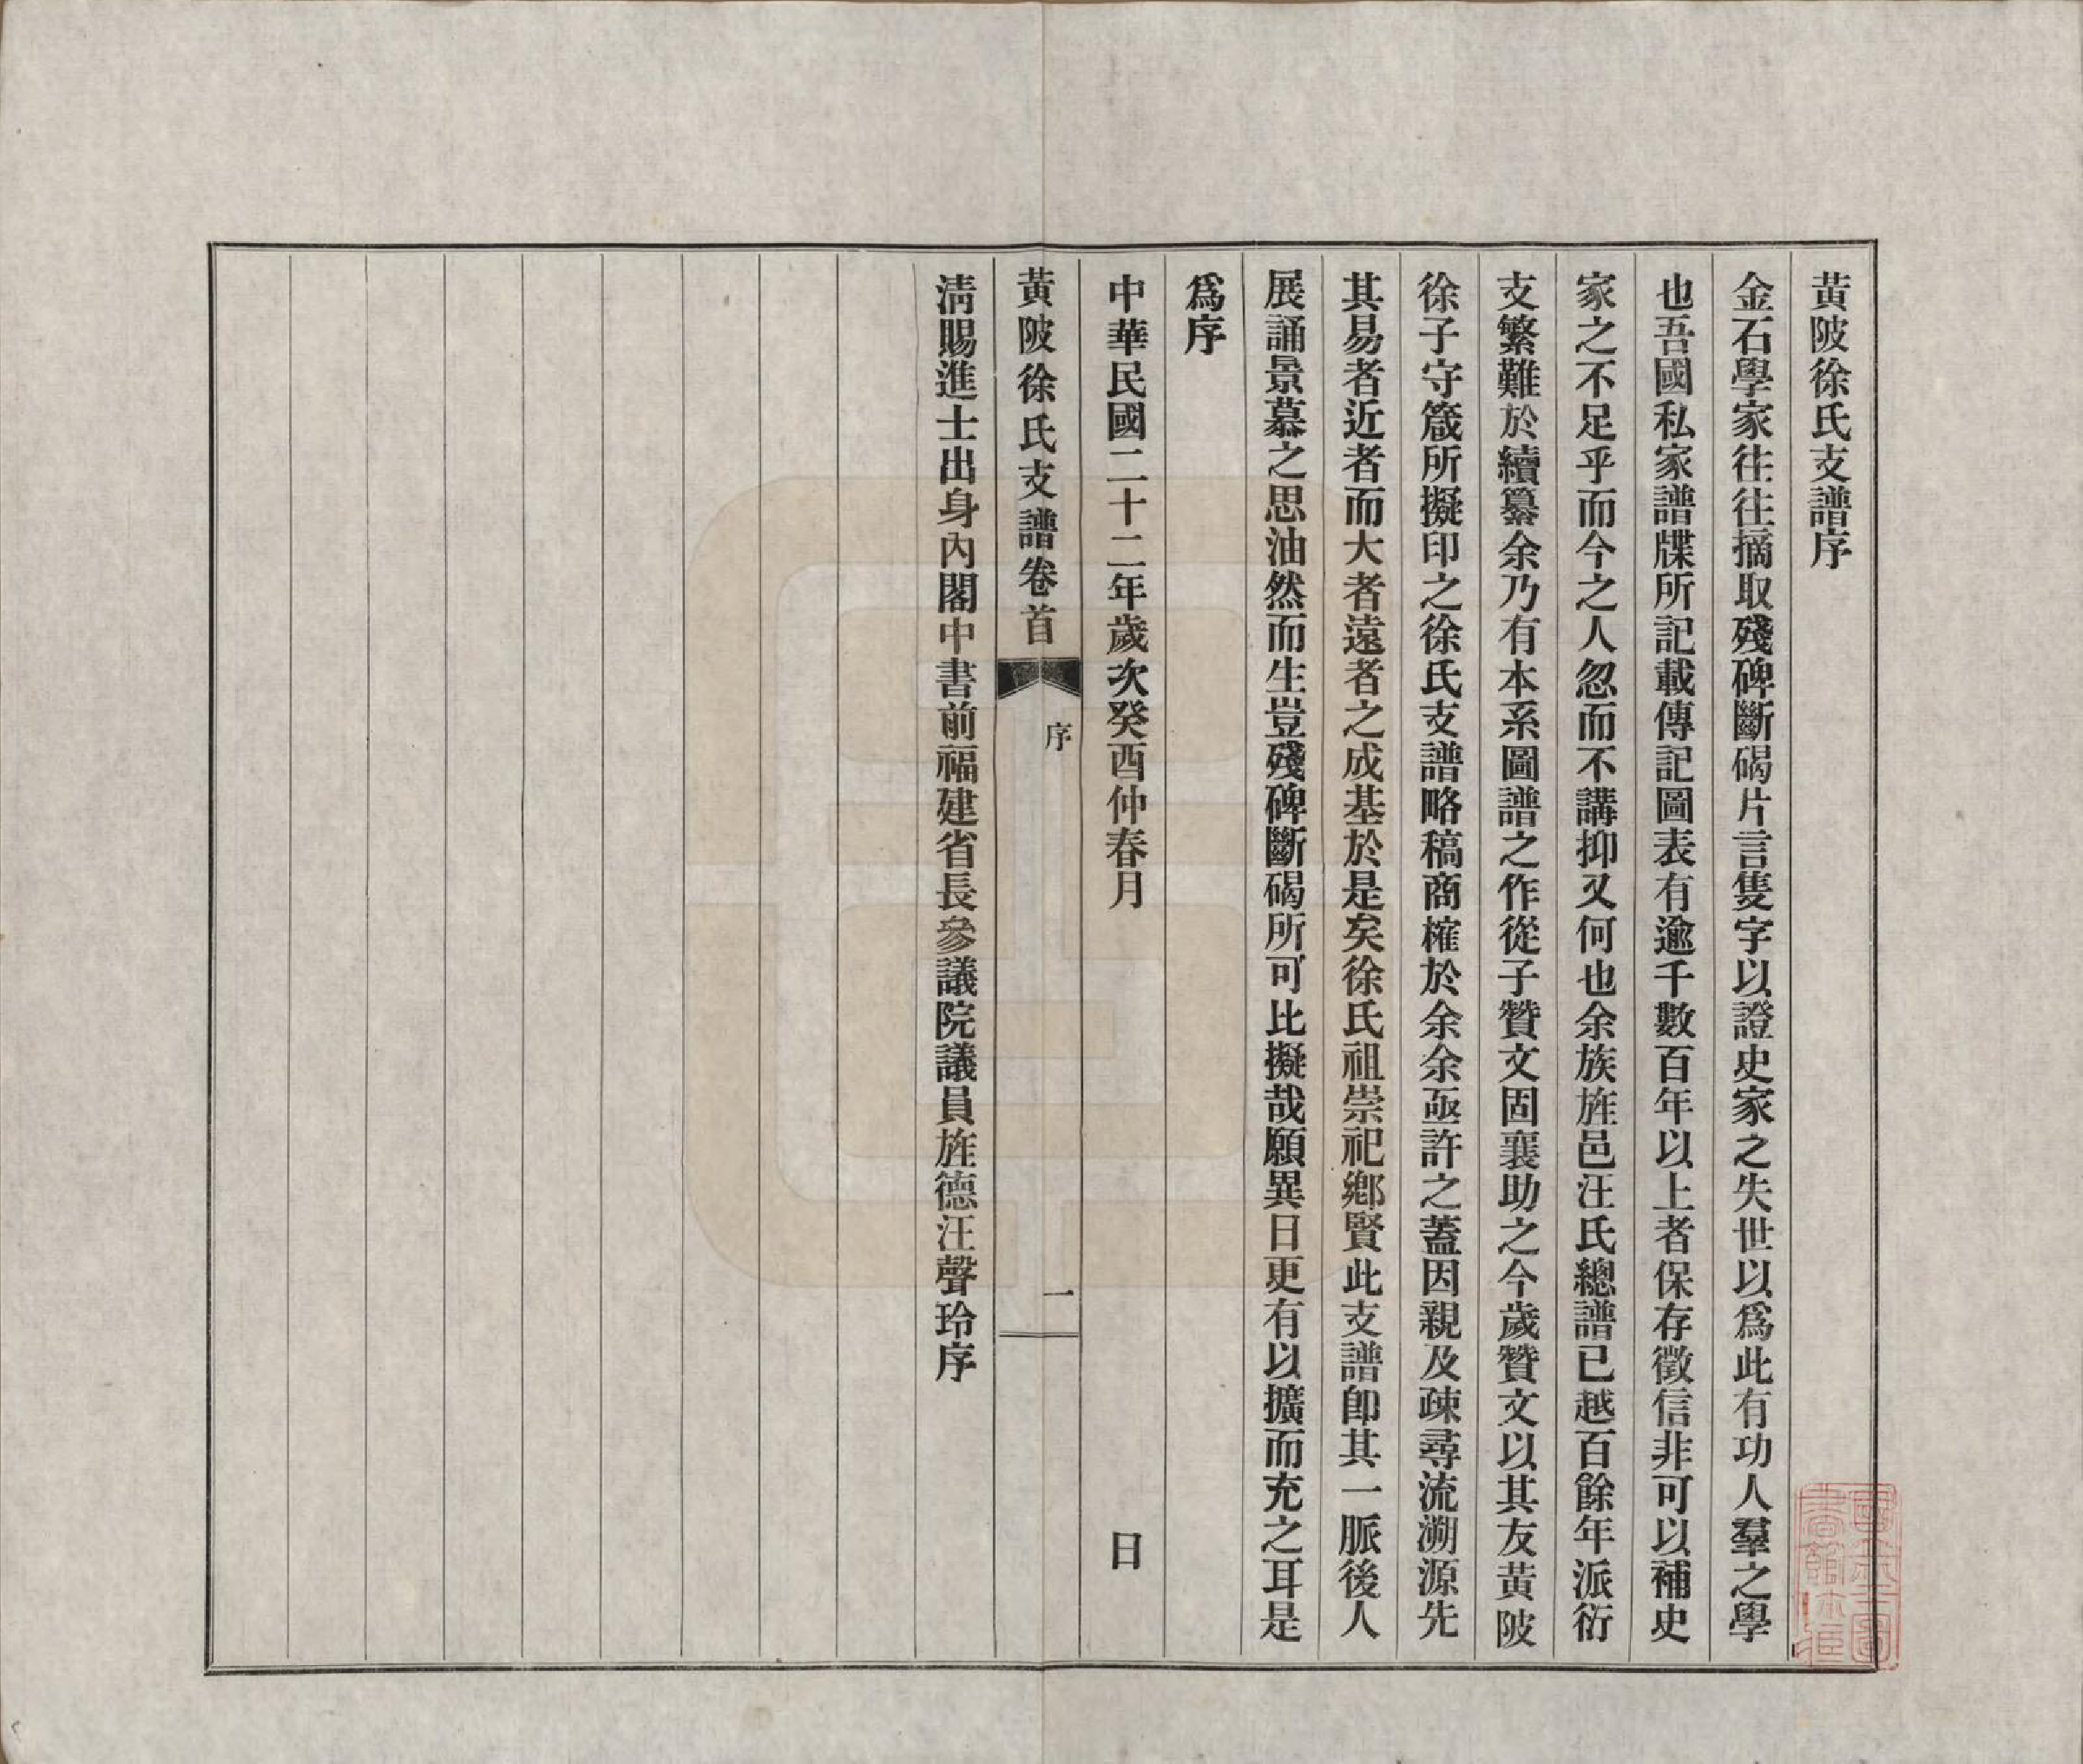 黃陂徐氏支譜序
金石學家往往摘取殘碑斷碣片言隻字以證史家之失世以爲此有功人羣之學
也吾國私家譜牒所記載傳記圖表有逾千數百年以上者保存徵信非可以補史
家之不足乎而今之人忽而不講抑又何也余族旌邑汪氏總譜已越百餘年派衍
支繁難於續纂余乃有本系圖譜之作從子贊文固襄助之今歲贊文以其友黃陂
徐子守箴所擬印之徐氏支譜略稿商榷於余余亟許之蓋因親及疎尋流溯源先
其易者近者而大者遠者之成基於是矣徐氏祖崇祀鄉賢此支譜卽其一脈後人
展誦景慕之思油然而生豈殘碑斷碣所可比擬哉願異日更有以擴而充之耳是
爲序
中華民國二十二年歲次癸酉仲春月 日
黃陂徐氏支譜卷首 序 一
淸賜進士出身內閣中書前福建省長參議院議員旌德汪聲玲序